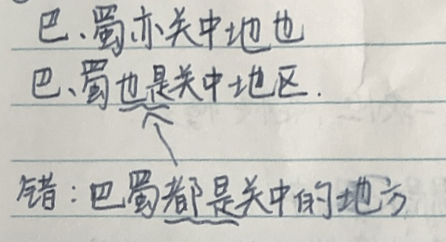 巴、蜀亦关中地也
巴、蜀也是关中地区.
错：巴蜀都是关中的地方